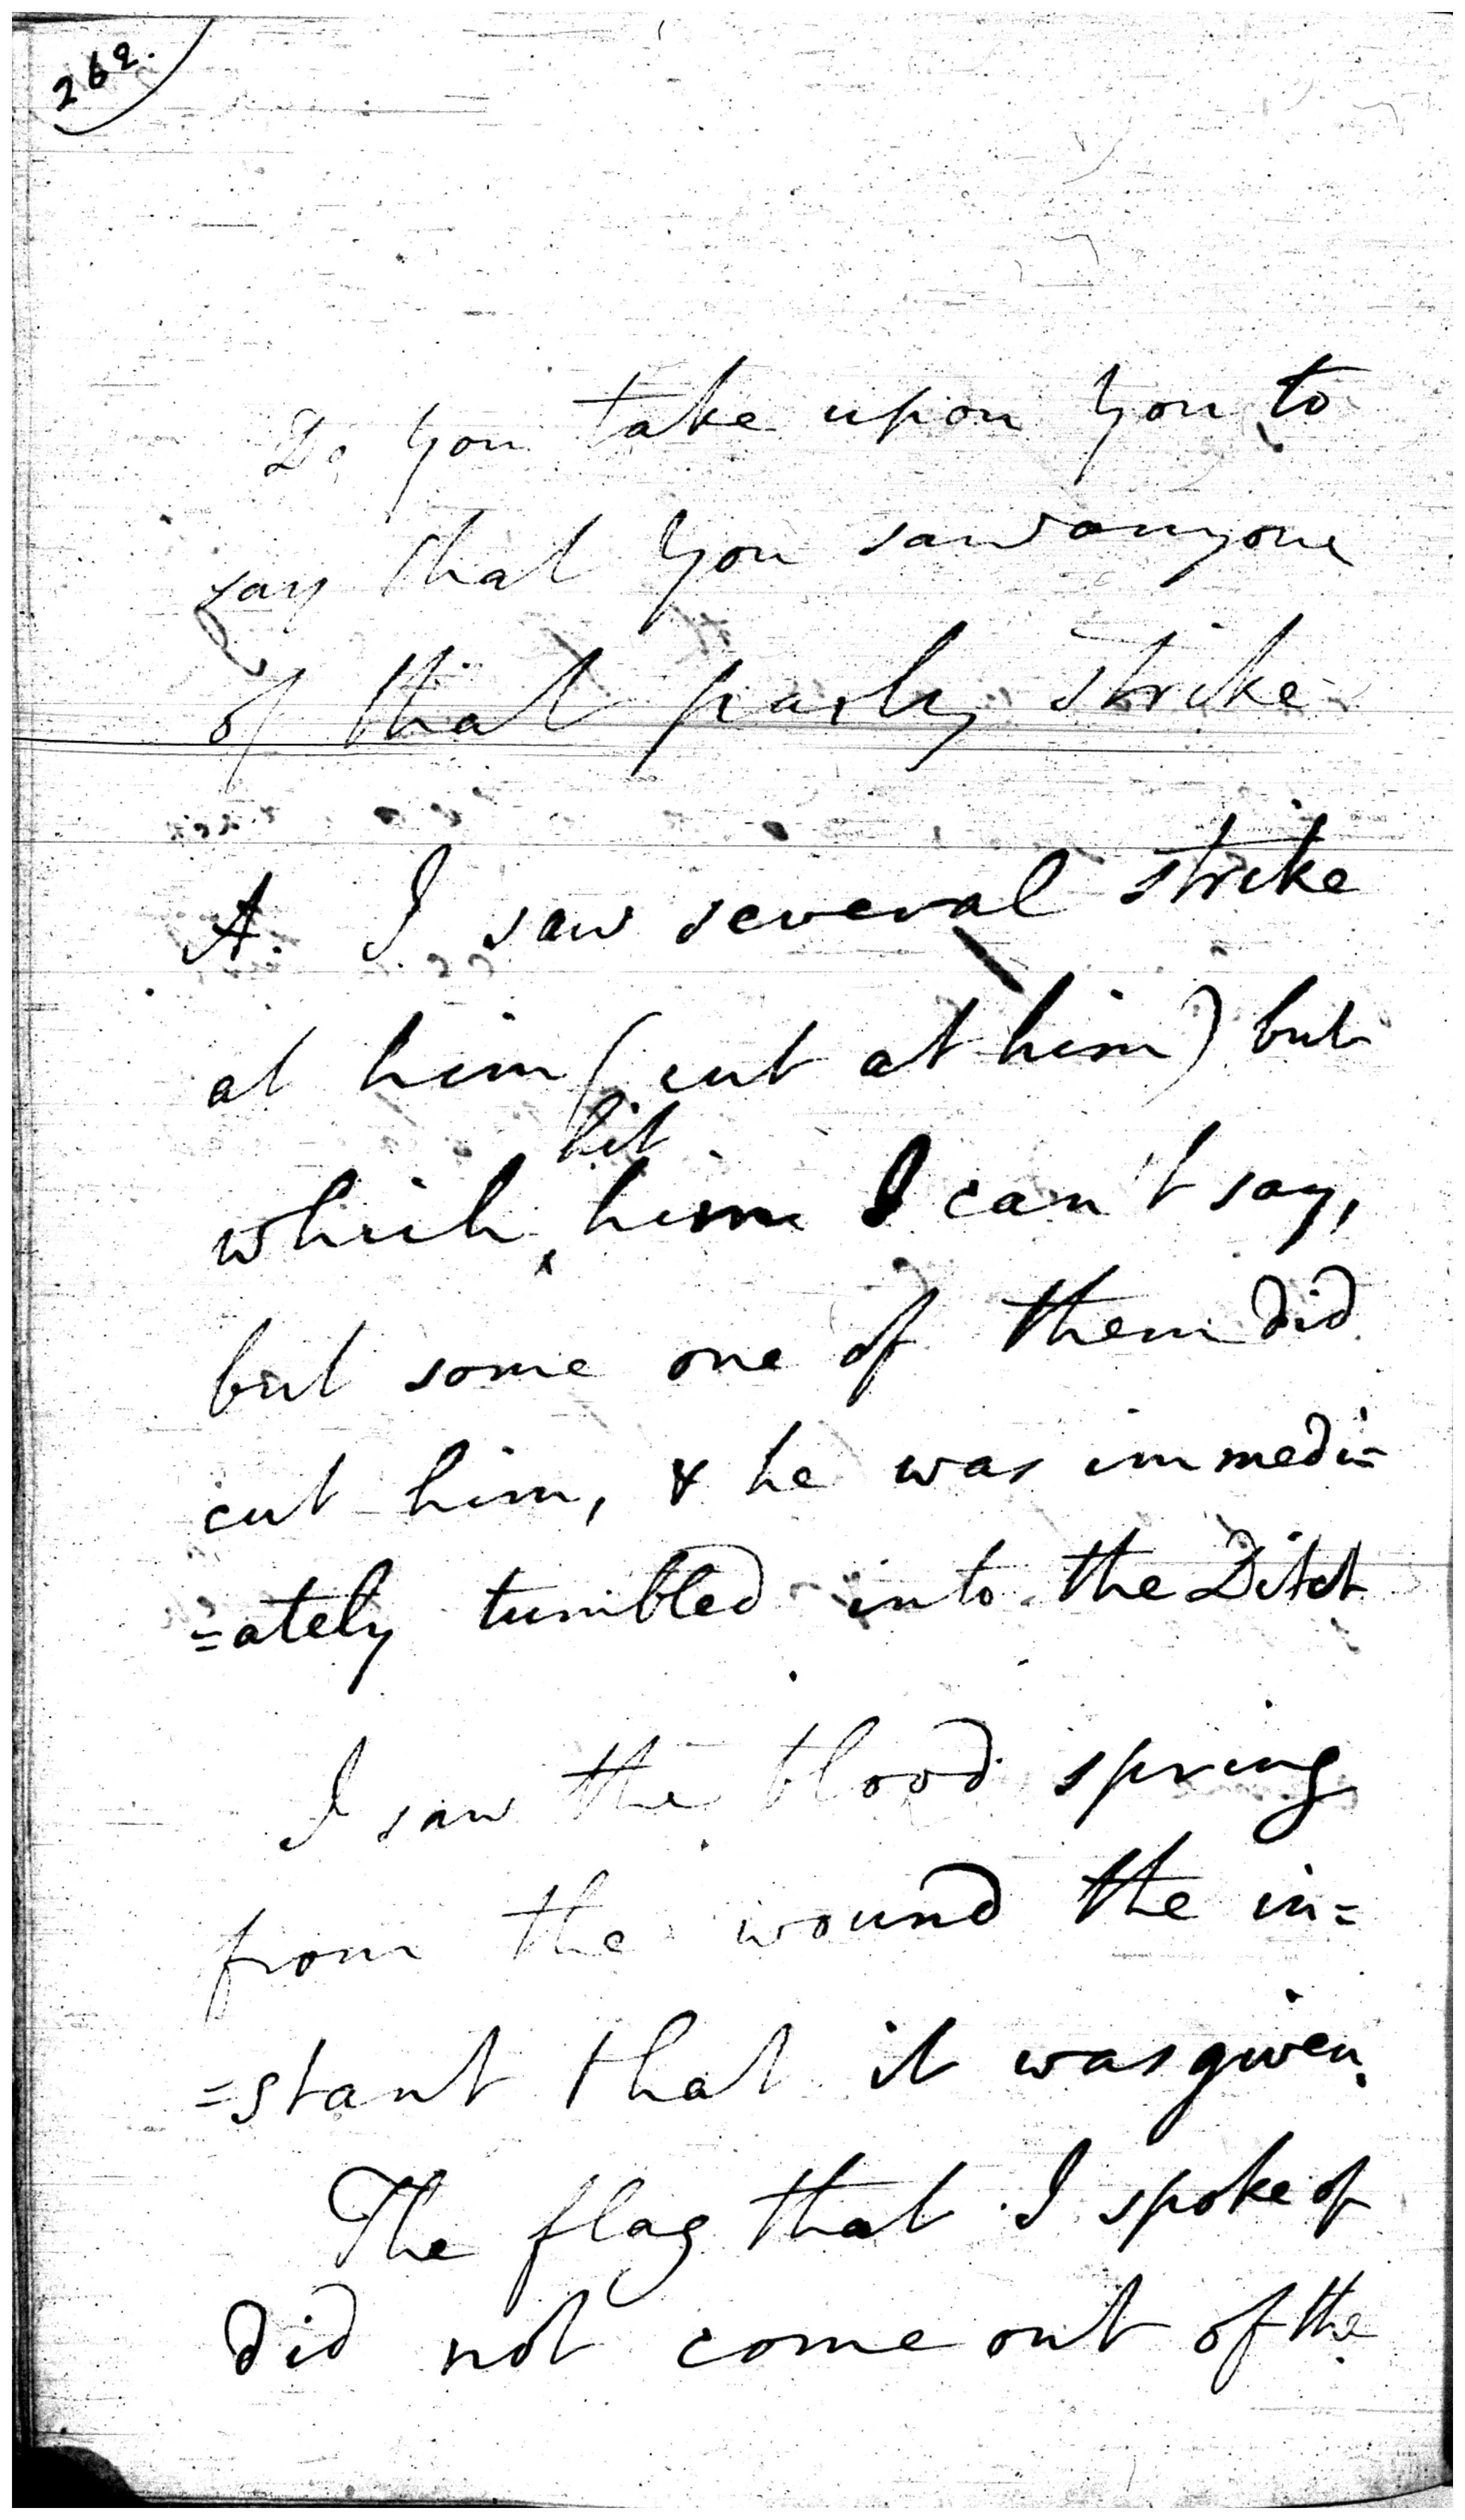 262.
Do you take upon you to
say that you saw anyone
of that party strike
A. I saw several strike
at him (cut at him) but
hit
which ‸ him I can't say,
but some one of them did
cut him, & he was immedi=
=ately tumbled into the Ditch
I saw the blood spring
from the wound the in=
=stant that it was given.
The flag that I spoke of
did not come out of the